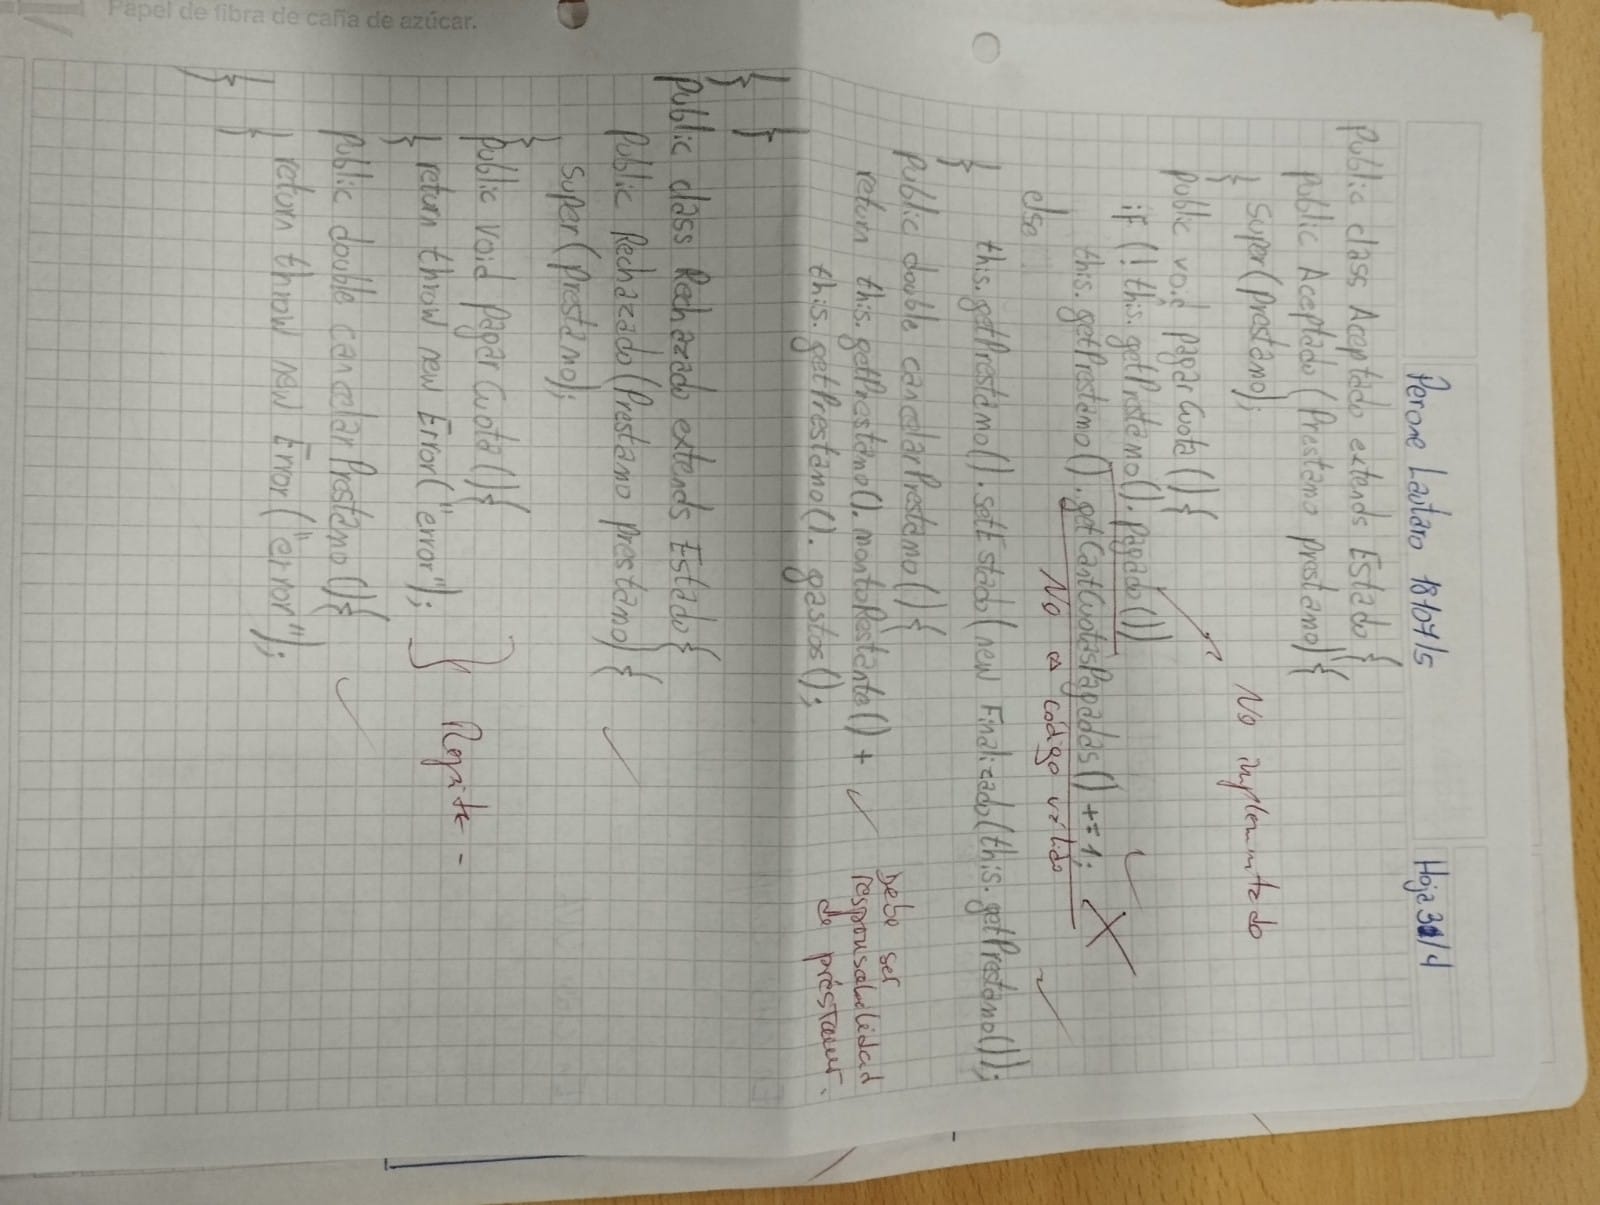 Perone Lautaro 18107/5
Hoja 3/4
public class Aceptado extends Estado {
public Aceptado (Prestamo prestamo) {
super(prestamo);
}
No implementado
public void pagarCuota () {
if (! this.getPrestamo().pagado())
this.getPrestamo().getCantCuotasPagadas() += 1;
No es código válido
else
this.getPrestamo().setEstado(new Finalizado(this.getPrestamo());
}
public double cancelarPrestamo () {
return this.getPrestamo().montoRestante() +
this.getPrestamo().gastos();
Debe ser
responsabilidad
de
}
}
public class Rechazado extends Estado {
public Rechazado (Prestamo prestamo) {
super(prestamo);
}
public void pagar Cuota () {
return throw new Error("error");
}
Repite -
public double cancelarPrestamo () {
return throw new Error("error");
}
}
Papel de fibra de caña de azúcar.